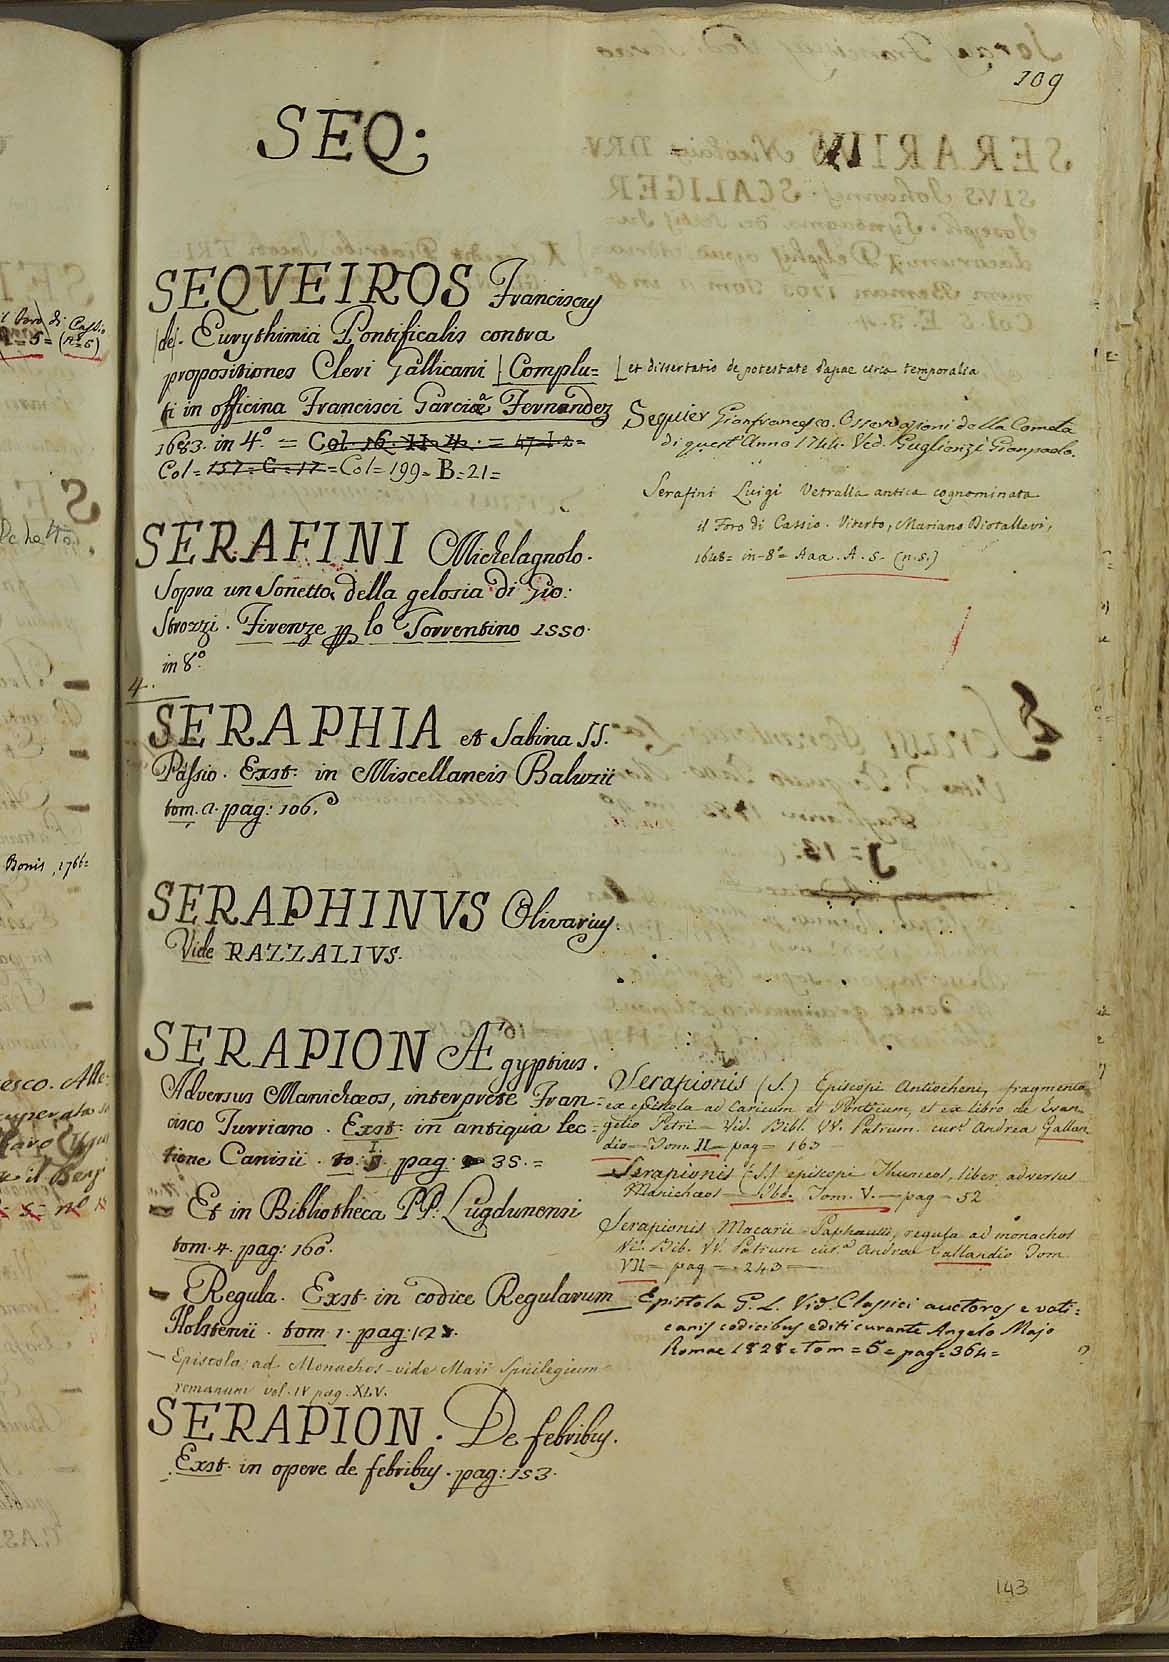 109
SEQ:
SEQVEIROS Franciscus
|de|. Eurythimia Pontificalis contra
propositiones Cleri Gallicani | Complu=
ti in officina Francisci Garciæ Fernandez
1683. in 4.° = Col. 16. H. 4. = 47-I-2=
Col= 137= C = 17 = Col= 199= B=21=
| et dissertatio de potestate Papae circa temporalia
Seguier Gianfrancesco. Osservazioni della Cometa
di quest'Anno 1744. Ved. Guglienzi Gianpaolo.
Serafini Luigi Vetralla antica cognominata
il Foro di Cassio. Viterbo, Mariano Diotallevi,
1648= in-8°= Aaa. A. 5. (n.5.)
SERAFINI Michelagnolo.
Sopra un Sonetto della gelosia di Gio:
Strozzi. Firenze pp lo Torrentino 1550.
in 8.°
4.
SERAPHIA et Sabina SS.
Passio. Exst: in Miscellaneis Baluzii
tom. 2. pag: 106.
SERAPHINVS Olivarius.
Vide RAZZALIVS.
SERAPION Ægyptius.
Adversus Manichæos, interprete Fran=
cisco Turriano. Exst: in antiqua lec=
tione Canisii. to: pag: 35.=
= Et in Bibliotheca PP. Lugdunensi
tom. 4. pag: 160.
= Regula. Exst: in codice Regularum
Holstenii. tom 1. pag: 12
— Epistola ad Monachos - vide Maii Spicilegium
romanum vol. IV pag. XLV.
Serapionis (S.) Episcopi Antiocheni, fragmenta
ex epistola ad Caricum et Ponticum, et ex libro de Evan=
gelio Petri — Vid. Bibl. VV. Patrum cur.e Andrea Gallan
dio — Tom. II — pag — 163
— Serapionis (S.) episcopi Thmueos, liber adversus
Manichaeos — Ibid. Tom. V. — pag — 52
Serapionis, Macarii Paphnutii, regula ad monachos
Vi. Bib. VV. Patrum cur.e Andrea Gallandio Tom
VII — pag — 243 —
Epistola G. L. Vid. Classici auctores e vati=
canis codicibus editi curante Angelo Majo
Romae 1828= Tom = 5 = pag= 364=
SERAPION. De febribus.
Exst. in opere de febribus. pag: 153.
143